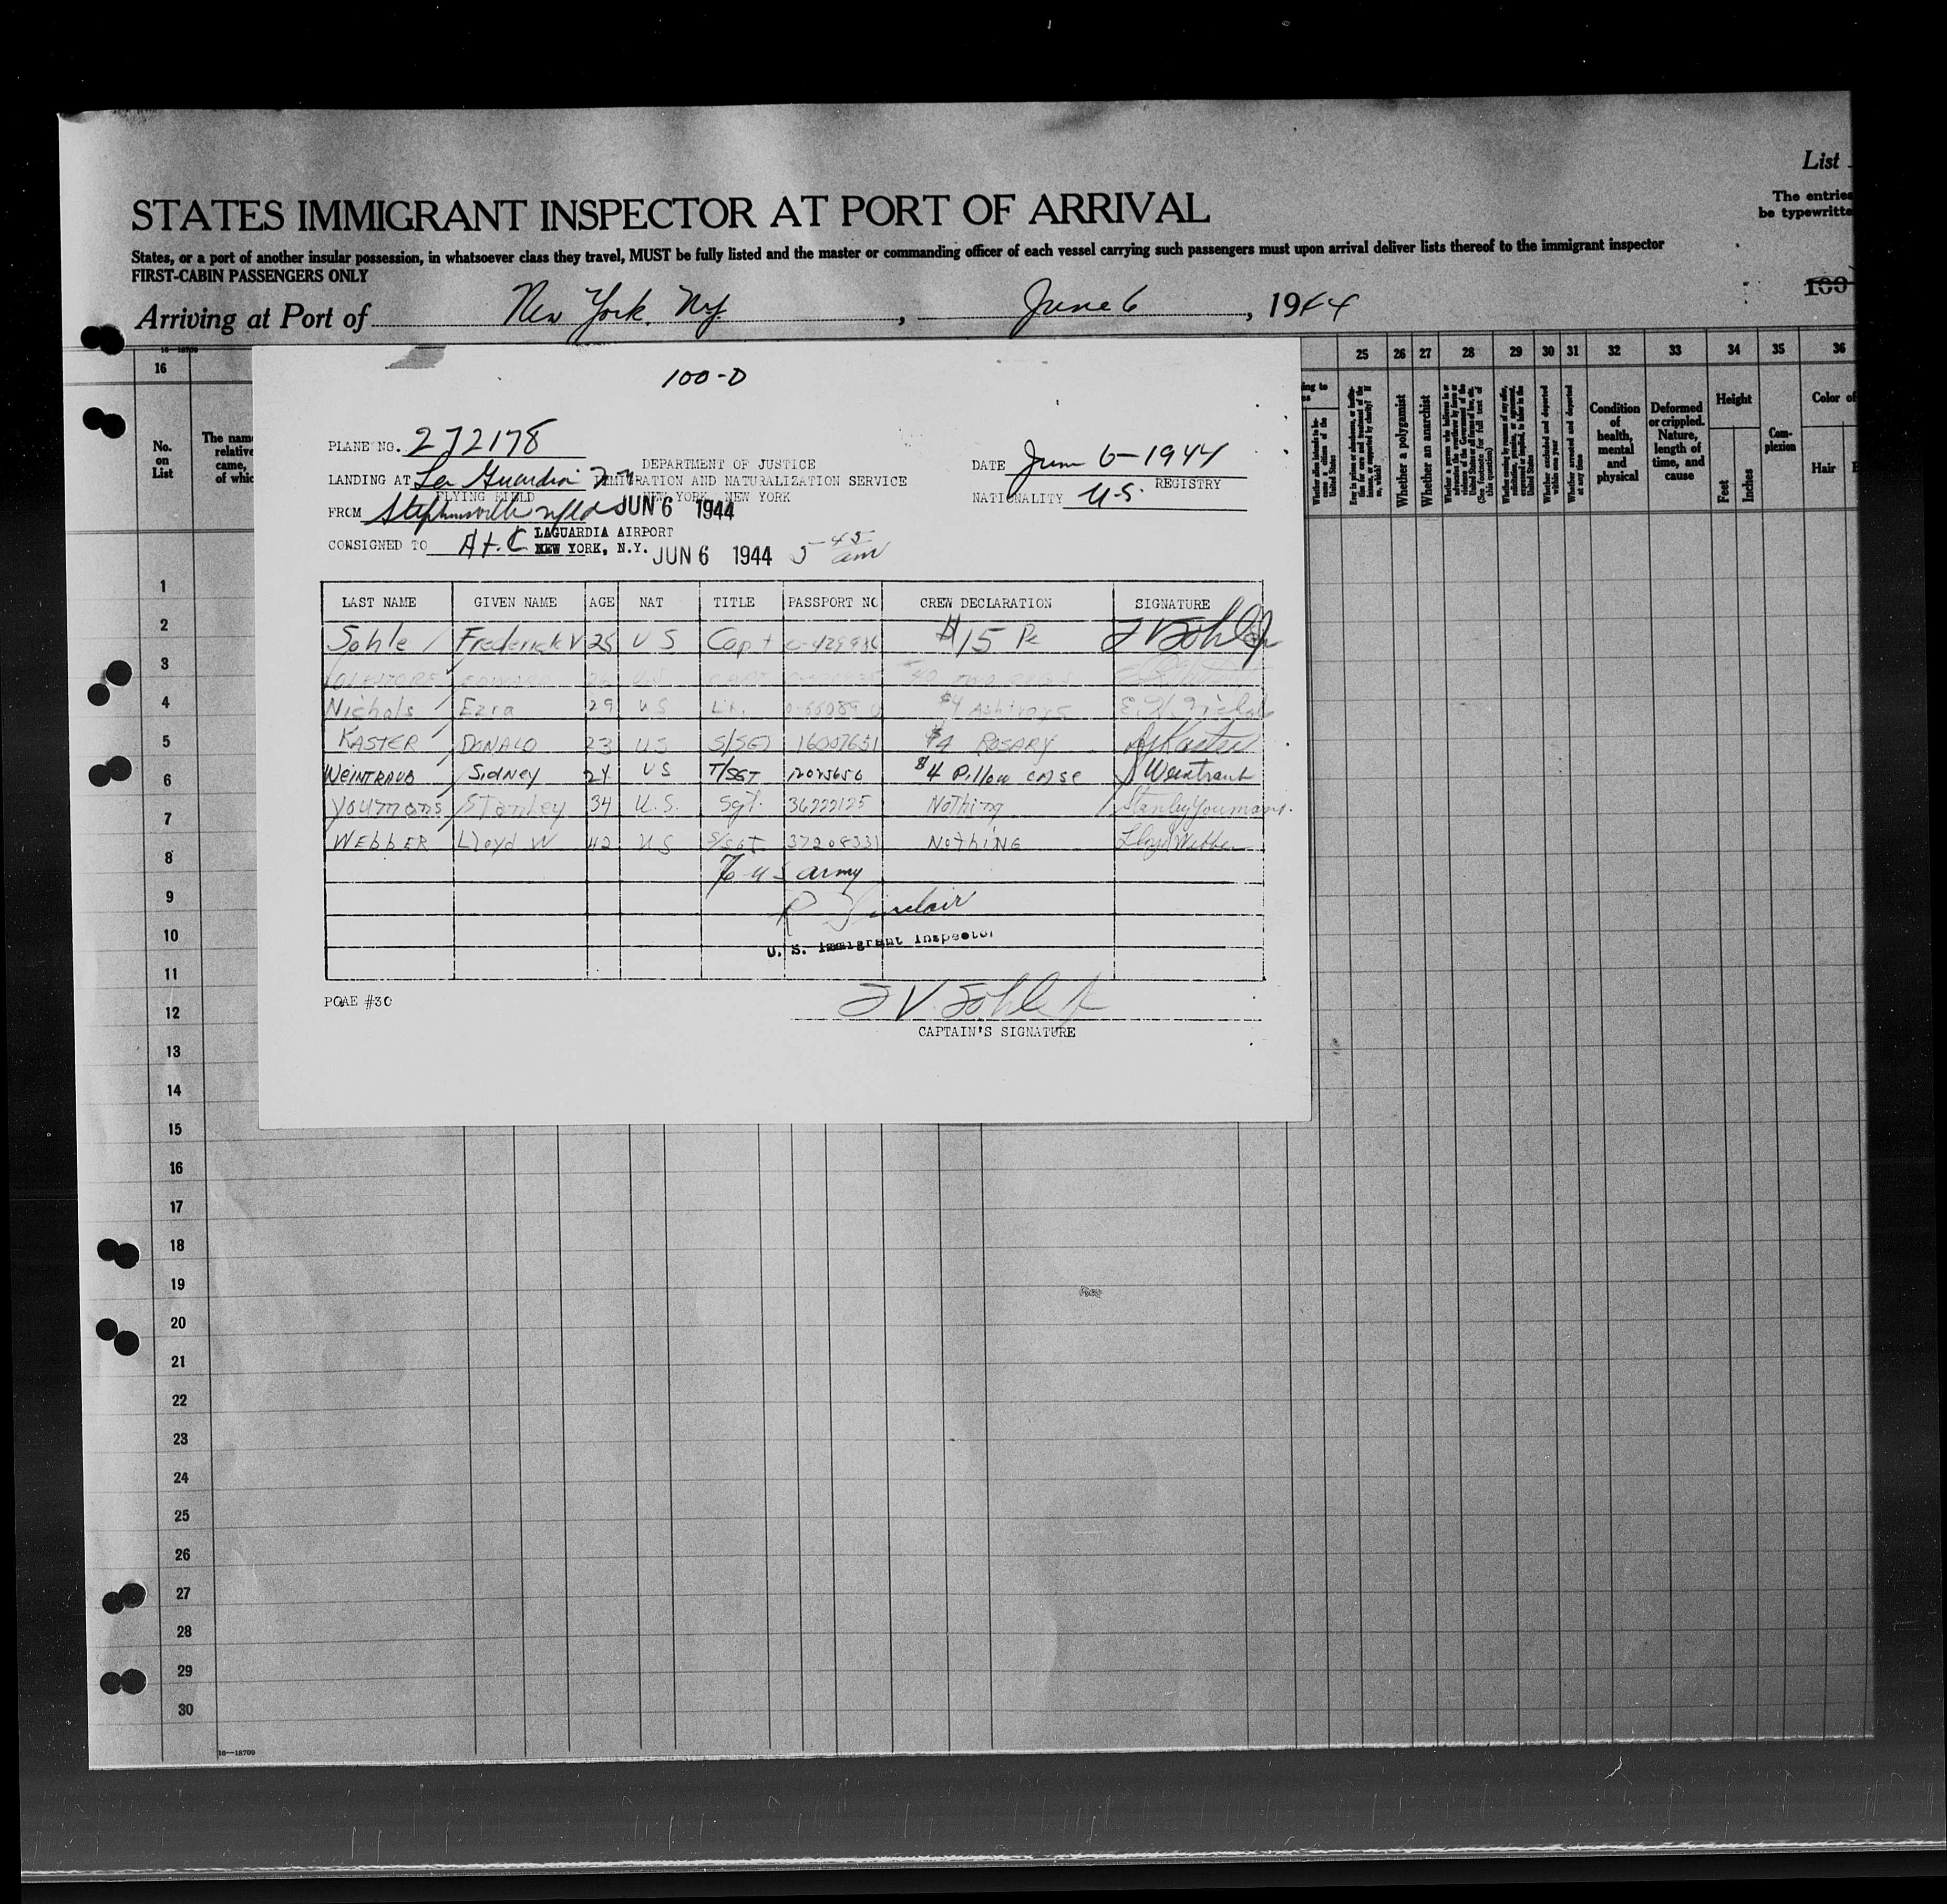 List
The entries
be typewritte
STATES IMMIGRANT INSPECTOR AT PORT OF ARRIVAL
States, or a port of another insular possession, in whatsoever class they travel, MUST be fully listed and the master or commanding officer of each vessel carrying such passengers must upon arrival deliver lists thereof to the immigrant inspector
FIRST-CABIN PASSENGERS ONLY
100
Arriving at Port of New York, NY. , June 6 , 1944
16 25 26 27 28 29 30 31 32 33 34 35 36
No. on List
The nam
relative
came,
of whic
Whether a polygamist
Whether an anarchist
Whether excluded and deported within one year
Whether arrested and deported at any time
Condition of health, mental and physical
Deformed or crippled. Nature, length of time, and cause
Height
Feet
Inches
Com-plexion
Color of
Hair
100-D
PLANE NO. 272178
DEPARTMENT OF JUSTICE
DATE June 6-1944
LANDING AT La Guardia
IMMIGRATION AND NATURALIZATION SERVICE
REGISTRY
FLYING FIELD
NEW YORK, NEW YORK
NATIONALITY U.S.
FROM Stephensville Nfld JUN 6 1944
CONSIGNED TO A.T.C
LAGUARDIA AIRPORT
NEW YORK, N.Y. JUN 6 1944 5-45 am
LAST NAME GIVEN NAME AGE NAT TITLE PASSPORT NO CREW DECLARATION SIGNATURE
Sohle Frederick V 25 U S Capt $15 Pc F V Sohle Jr
Nichols Ezra 29 US Lt. $4 Ashtrays E. Nichols
KASTER DONALD 23 US S/SGT 16007651 $4 ROSARY Kaster
WEINTRAUB Sidney 24 US T/SGT 12025656 $4 Pillow case S Weintraub
Youmans Stanley 34 U.S. Sgt. 36222125 Nothing Stanley Youmans.
WEBBER Lloyd W 42 US S/SGT 37208331 NOTHING Lloyd Webber
7 US Army
R Sinclair
U. S. Immigrant Inspector
POAE #30
F V Sohle Jr
CAPTAIN'S SIGNATURE
1
2
3
4
5
6
7
8
9
10
11
12
13
14
15
16
17
18
19
20
21
22
23
24
25
26
27
28
29
30
16—18709